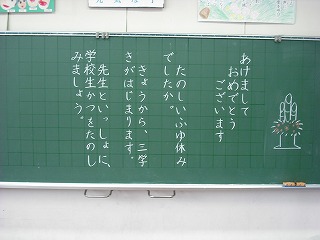 あけまして
おめでとう
ございます
たのしいふゆ休み
でしたか。
きょうから、三学
きがはじまります。
先生といっしょに、
学校生かつをたのし
みましょう。